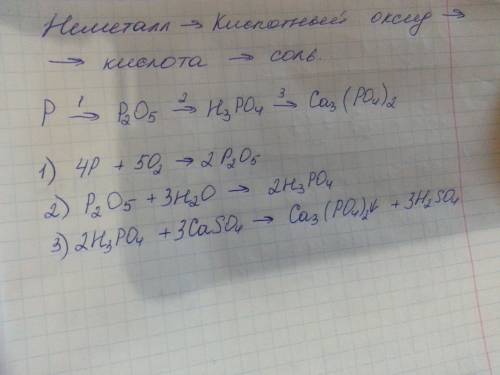 Неметалл → Кислотный оксид →
→ кислота → соль.
P 1→ P₂O₅ 2→ H₃PO₄ 3→ Ca₃(PO₄)₂
1) 4P + 5O₂ → 2P₂O₅
2) P₂O₅ + 3H₂O → 2H₃PO₄
3) 2H₃PO₄ + 3CaSO₄ → Ca₃(PO₄)₂↓ + 3H₂SO₄